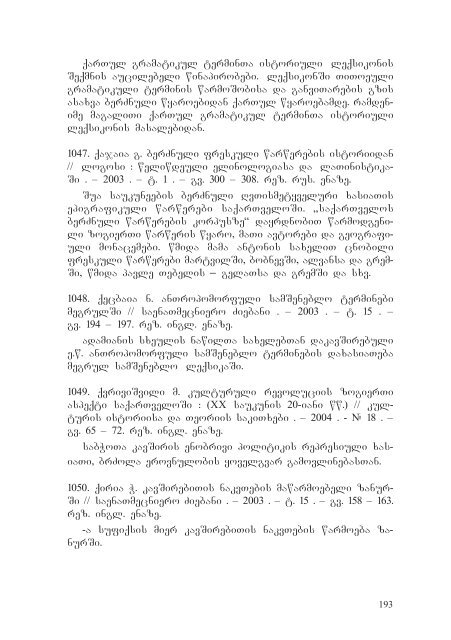 ქართულ გრამატიკულ ტერმინთა ისტორიული ლექსიკონის
შექმნის აუცილებელი წინაპირობები. ლექსიკონში თითოეული
გრამატიკული ტერმინის წარმოშობისა და განვითარების გზის
ასახვა ბერძნული წყაროებიდან ქართულ წყაროებამდე. რამდენ-
იმე მაგალითი ქართულ გრამატიკულ ტერმინთა ისტორიული
ლექსიკონის მასალებიდან.
1047. ქაჯაია გ. ბერძნული ფრესკული წარწერების ისტორიიდან
// ლოგოსი : წელიწდეული ელინოლოგიასა და ლათინისტიკა-
ში . – 2003 . – ტ. 1 . – გვ. 300 – 308. რეზ. რუს. ენაზე.
შუა საუკუნეების ბერძნული ღვთისმეტყველური ხასიათის
ეპიგრაფიკული წარწერები საქართველოში. „საქართველოს
ბერძნული წარწერების კორპუსზე“ დაყრდნობით წარმოდგენი-
ლი ზოგიერთი წარწერის წყარო, მათი ავტორები და გეოგრაფი-
ული მონაცემები. წმიდა მამა ანტონის სახელით ცნობილი
ფრესკული წარწერები მარტვილში, ბობნევში, ალვანსა და გრემ-
ში, წმიდა პავლე თებელის – გელათსა და გრემში და სხვ.
1048. ქეცბაია ნ. ანთროპომორფული სამშენებლო ტერმინები
მეგრულში // საენათმეცნიერო ძიებანი . – 2003 . – ტ. 15 . –
გვ. 194 – 197. რეზ. ინგლ. ენაზე.
ადამიანის სხეულის ნაწილთა სახელებთან დაკავშირებული
ე.წ. ანთროპომორფული სამშენებლო ტერმინების დახასიათება
მეგრულ სამშენებლო ლექსიკაში.
1049. ქვრივიშვილი მ. კულტურული რევოლუციის ზოგიერთი
ასპექტი საქართველოში : (XX საუკუნის 20-იანი წწ.) // კულ-
ტურის ისტორიისა და თეორიის საკითხები . – 2004 . - № 18 . –
გვ. 65 – 72. რეზ. ინგლ. ენაზე.
საბჭოთა კავშირის ენობრივი პოლიტიკის რეპრესიული ხას-
იათი, ბრძოლა ეროვნულობის ყოველგვარ გამოვლინებასთან.
1050. ქირია ჭ. კავშირებითის ნაკვთების მაწარმოებელი ზანურ-
ში // საენათმეცნიერო ძიებანი . – 2003 . – ტ. 15 . – გვ. 158 – 163.
რეზ. ინგლ. ენაზე.
-ა სუფიქსის მიერ კავშირებითის ნაკვთების წარმოება ზა-
ნურში.
193